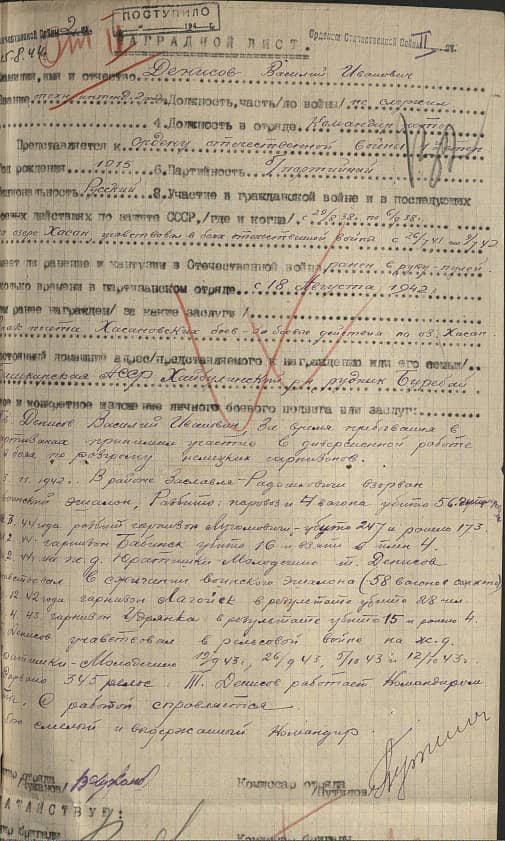 ПОСТУПИЛО
194 г.
Отечественной Войны 2 ст.
Орденом Отечественной Войны II ст.
5.8.44
НАГРАДНОЙ ЛИСТ.
Фамилия, имя и отчество. Денисов Василий Иванович
Звание техник-инт. 2 р. Должность, часть/до войны/ не служил
4. Должность в отряде. Командир роты
Представляется к ордену отечественной войны
Год рождения 1915 6. Партийность б/партийный
Национальность Русский 8. Участие в гражданской войне и в последующих
боевых действиях по защите СССР, /где и когда/ с 29/8.38. по 6/9.38.
на озере Хасан, участвовал в боях отечественной война с 26/7 41 по 9/7 42
Имеет ли ранение и контузии в Отечественной войне ранен в руку-пулей
Сколько времени в партизанском отряде. с 18 Августа 1942 г.
Чем ранее награжден/ за какие заслуги /
Знак участника Хасановских боев - за боевые действия по оз. Хасан
Постоянный домашний адрес/представляемого к награждению или его семьи/
Башкирская АССР Хайбулинский р-н рудник Бурибай
Краткое и конкретное изложение личного боевого подвига или заслуг:
Тов. Денисов Василий Иванович, за время пребывания в
партизанах принимал участие в диверсионной работе
и боях по разгрому немецких гарнизонов.
11. 1942 г. В районе Заславля-Радошковичи взорван
воинский эшалон, Разбито: паровоз и 4 вагона убито 56
3. 44 года разбит гарнизон убито 247 и ранено 173.
2. 44 гарнизон Бабинск убито 16 и взяты в плен 4.
2. 44 на ж.д. Юратишки Молодечно т. Денисов
участвовал в сжигании воинского эшалона (58 вагонов сожжено)
12. 42 года гарнизон Лагойск в результате убито 28 чел.
4. 43. гарнизон в результате убито 15 и ранено 4.
Денисов участвовал в рельсовой войне на ж.д.
Юратишки-Молодечно 19/9 43., 26/9 43, 5/10 43 и 12/10 43 г.
взорвано 345 рельс. Т. Денисов работает Командиром
роты. С работой справляется
смелый и выдержанный Командир.
Комиссар отряда
/Путилов/
ХОДАТАЙСТВУЮ:
Командир бригады Комиссар бригады